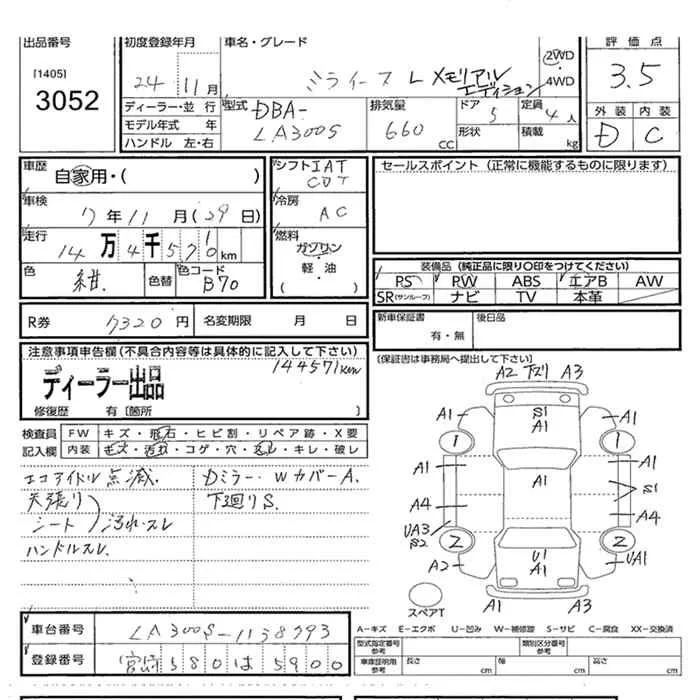 出品番号
[1405]
3052
初度登録年月
24 11月
車名・グレード
ミライース L メモリアル
エディション
2WD
・
4WD
評価点
3.5
外装 内装
D C
ディーラー・並行
モデル年式 年
ハンドル 左・右
型式
DBA-
LA300S
排気量
660
CC
ドア
5
形状
定員
4人
積載
kg
車歴
自家用・( )
車検
7年11月(29日)
走行
14万4千570km
色
紺.
色替
色コード
B70
シフト IAT
CVT
冷房
AC
燃料
ガソリン
・
軽・油
( )
セールスポイント (正常に機能するものに限ります)
装備品 (純正品に限り〇印をつけてください)
PS PW ABS エアB AW
SR(サンルーフ) ナビ TV 本革
R券
7320円
名変期限 月 日
新車保証書
有・無
後日品
[保証書は事務局へ提出して下さい]
注意事項申告欄(不具合内容等は具体的に記入して下さい)
144571km
ディーラー出品
修復歴 有 [箇所 ]
検査員
記入欄
FW キズ・飛石・ヒビ割・リペア跡・X要
内装 キズ・汚れ・コゲ・穴・スレ・キレ・破レ
エコアイドル点滅.
天張り
シート 汚れ・スレ
ハンドルスレ.
Dミラー・Wカバー A.
下廻りS.
A2 下ズリ A3
S1
A1
A1
A1
1
1
A1
A1
A1
S1
A4
A4
UA3
S2
2
2
A2
U1
A1
UA1
A1
A3
スペアT
A-キズ E-エクボ U-凹み W-補修跡 S-サビ C-腐食 XX-交換済
車台番号
LA300S-1138793
登録番号
宮崎 580 は 5900
型式指定番号
参考
類別区分番号
参考
車庫証明用
参考
長さ cm
幅 cm
高さ cm